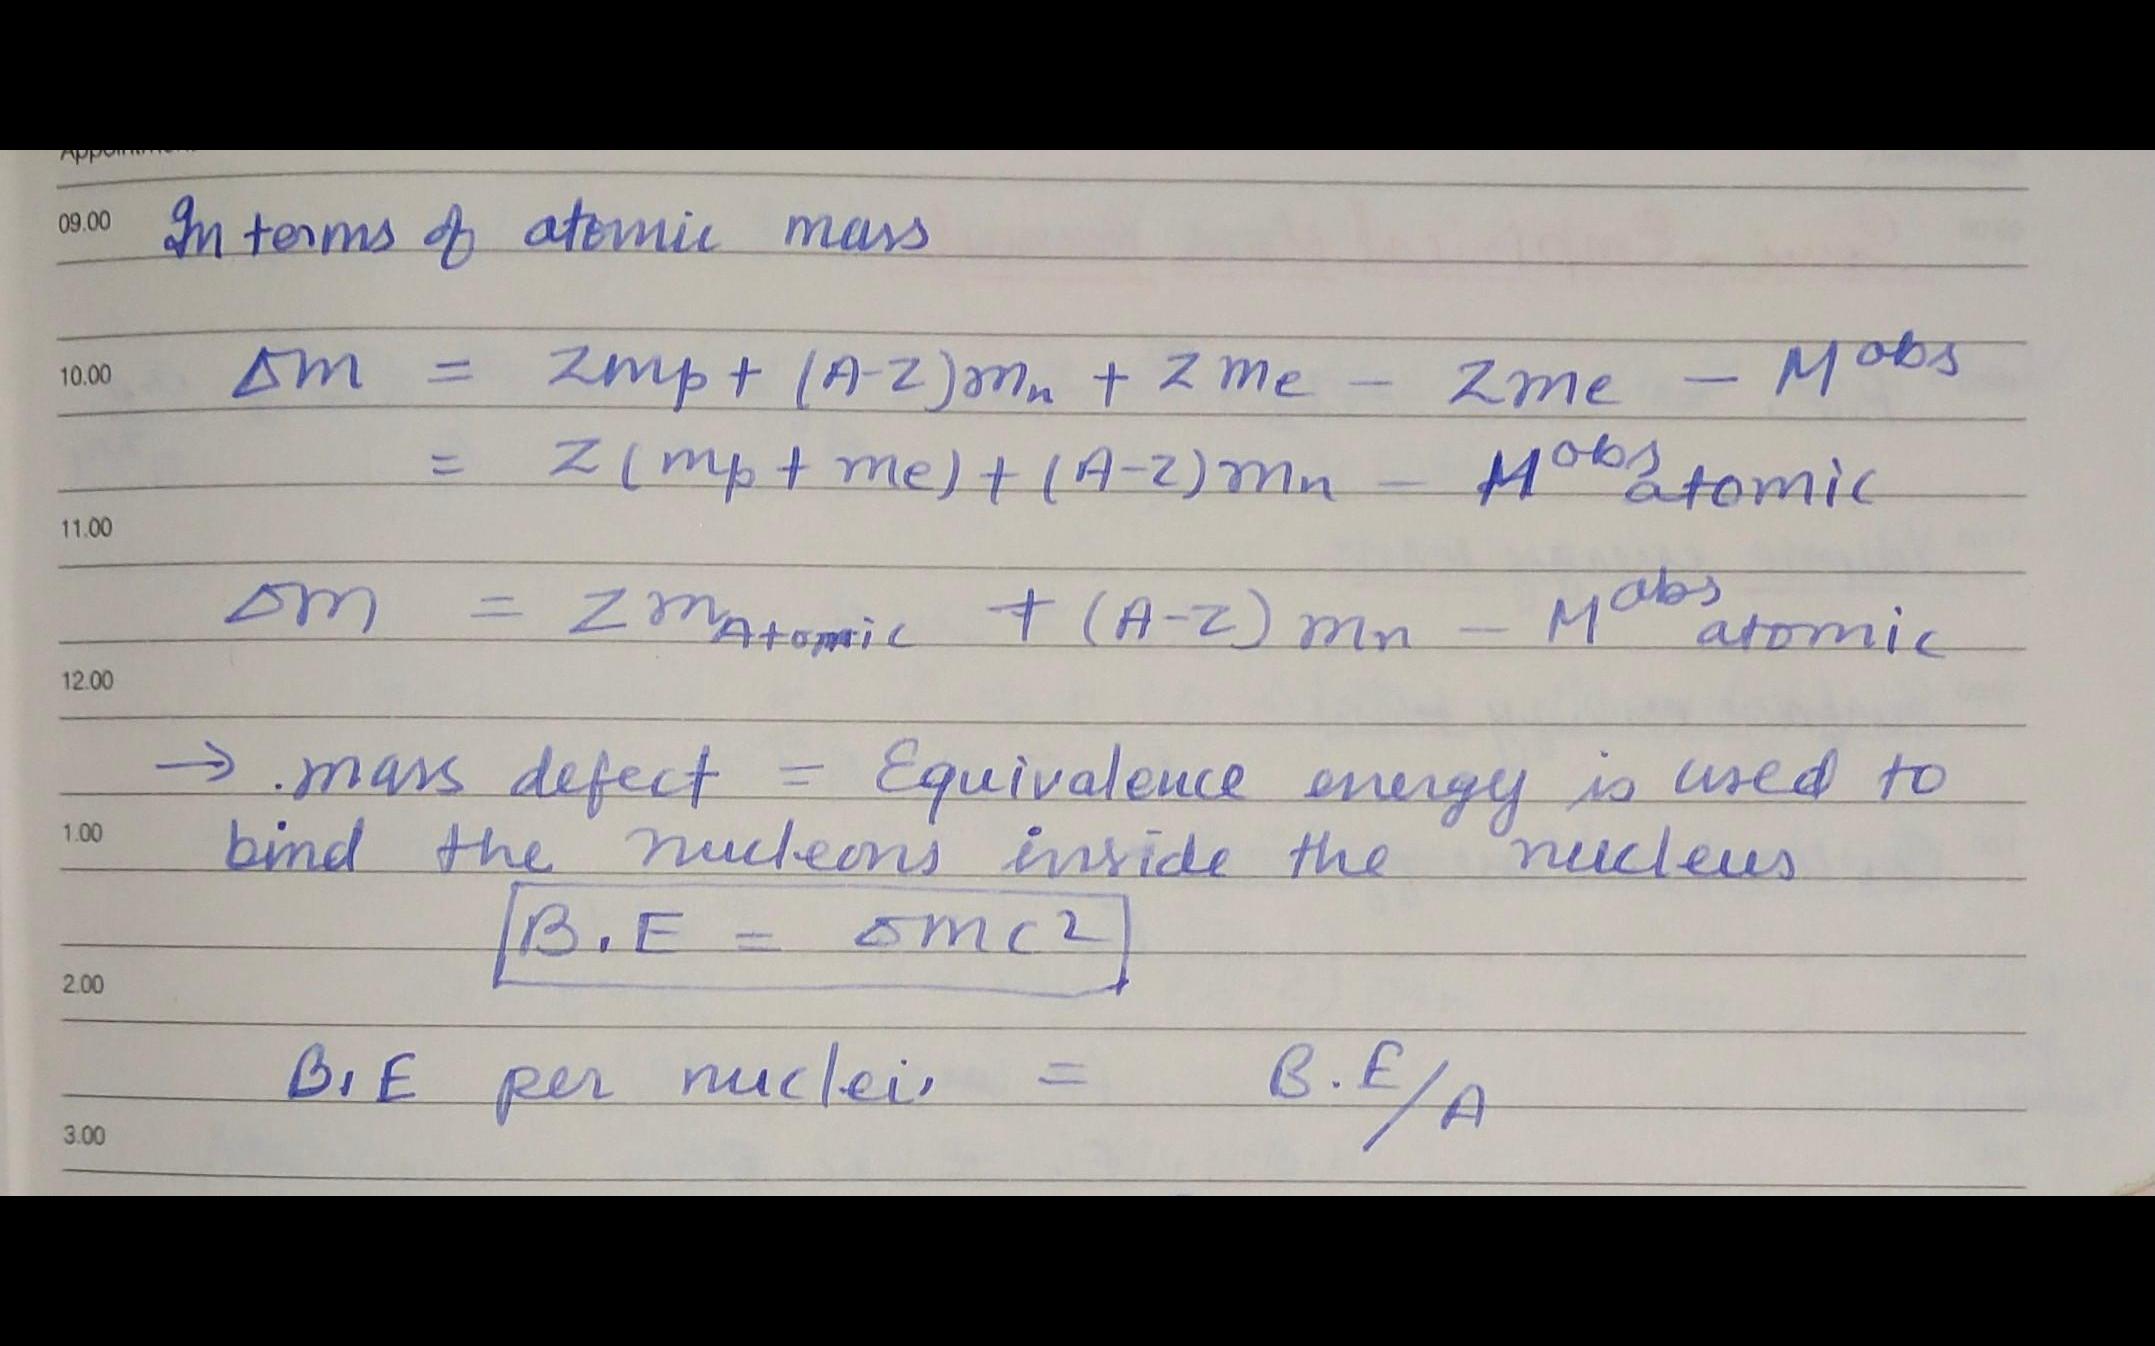 09.00 In terms of atomic mass
10.00 Δm = Zmp + (A-Z)mn + Zme - Zme - M obs
= Z(mp + me) + (A-Z)mn - M obs atomic
11.00
Δm = Z m Atomic + (A-Z) mn - M obs atomic
12.00
→ .mass defect = Equivalence energy is used to
1.00 bind the nucleons inside the nucleus
B.E = Δmc2
2.00
B.E per nuclei. = B.E/A
3.00